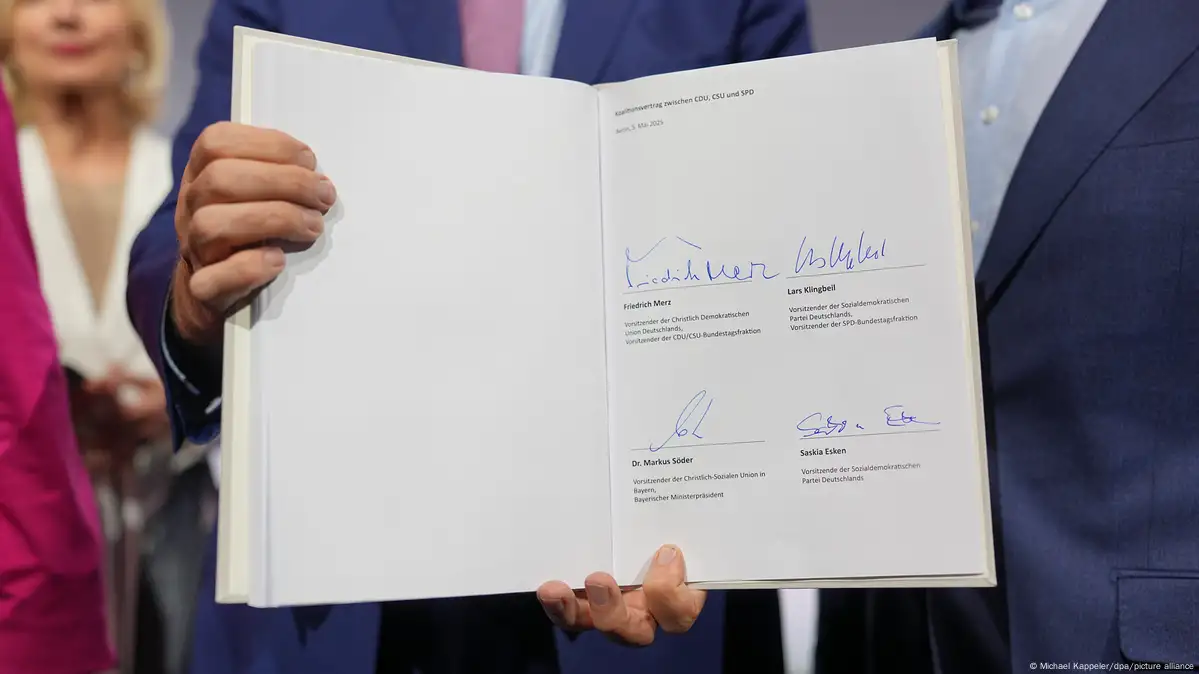 Koalitionsvertrag zwischen CDU, CSU und SPD
Berlin, 5. Mai 2025
Friedrich Merz
Friedrich Merz
Vorsitzender der Christlich Demokratischen
Union Deutschlands,
Vorsitzender der CDU/CSU-Bundestagsfraktion
Lars Klingbeil
Vorsitzender der Sozialdemokratischen
Partei Deutschlands
Vorsitzender der SPD-Bundestagsfraktion
Dr. Markus Söder
Vorsitzender der Christlich-Sozialen Union in
Bayern,
Bayerischer Ministerpräsident
Saskia Esken
Vorsitzende der Sozialdemokratischen
Partei Deutschlands
© Michael Kappeler/dpa/picture alliance